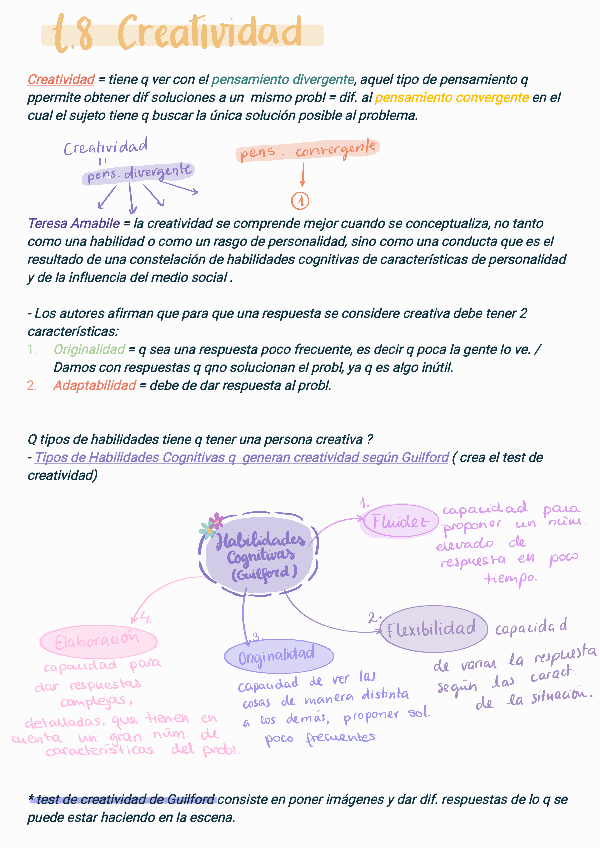 t.8 Creatividad
Creatividad = tiene q ver con el pensamiento divergente, aquel tipo de pensamiento q
ppermite obtener dif soluciones a un mismo probl = dif. al pensamiento convergente en el
cual el sujeto tiene q buscar la única solución posible al problema.
Creatividad
=
pens. divergente
pens. convergente
1
Teresa Amabile = la creatividad se comprende mejor cuando se conceptualiza, no tanto
como una habilidad o como un rasgo de personalidad, sino como una conducta que es el
resultado de una constelación de habilidades cognitivas de características de personalidad
y de la influencia del medio social .
- Los autores afirman que para que una respuesta se considere creativa debe tener 2
características:
1. Originalidad = q sea una respuesta poco frecuente, es decir q poca la gente lo ve. /
Damos con respuestas q qno solucionan el probl, ya q es algo inútil.
2. Adaptabilidad = debe de dar respuesta al probl.
Q tipos de habilidades tiene q tener una persona creativa ?
- Tipos de Habilidades Cognitivas q generan creatividad según Guilford ( crea el test de
creatividad)
Habilidades
Cognitivas
(Guilford)
1.
Fluidez
capacidad para
proponer un núm.
elevado de
respuesta en poco
tiempo.
2.
Flexibilidad
capacidad
de variar la respuesta
según las caract.
de la situación.
3.
Originalidad
capacidad de ver las
cosas de manera distinta
a los demás, proponer sol.
poco frecuentes
4.
Elaboración
capacidad para
dar respuestas
complejas,
detalladas, que tienen en
cuenta un gran núm. de
características del probl.
* test de creatividad de Guilford consiste en poner imágenes y dar dif. respuestas de lo q se
puede estar haciendo en la escena.